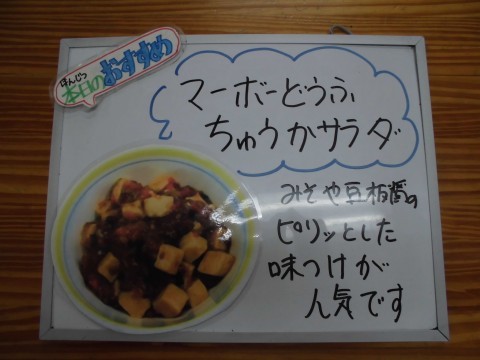 ほんじつ
本日のおすすめ
マーボーどうふ
ちゅうかサラダ
みそや豆板醤の
ピリッとした
味つけが
人気です